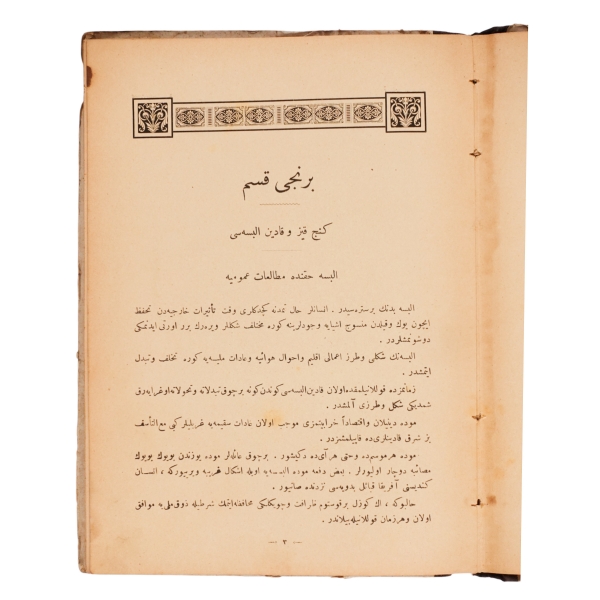 برنجی قسم
كنج قیز و قادین البسه‌سی
البسه حقنده مطالعات عمومیه
البسه بدنك برستره‌سیدر . انسانلر حال تمدنه كچدكلری وقت تأثیرات خارجیه‌دن تحفظ
ایچون یوك وقیلدن منسوج اشیایه وجودلرینه كوره مختلف شكللر ویره‌رك برر اورتی ایدنمكی
دوشونمشلردر .
البسه‌نك شكلی وطرز اعمالی اقلیم واحوال هوائیه وعادات ملیه‌یه كوره تخلف وتبدل
ایتمشدر .
زمانمزده قوللانیلمقده‌اولان قادین‌البسه‌سی‌كوندن‌كونه برچوق‌تبدلاته وتحولاته‌اوغرایه‌رق
شمدیكی شكل وطرزی آلمشدر .
موده دینیلان واقتصاداً خرابیتمزی موجب اولان عادات سقیمه‌یه غربلیلركبی مع‌التأسف
بز شرق قادینلری‌ده قاپیلمشزدر .
موده هرموسم‌ده وحتی هرآی‌ده دكیشور . برچوق عائله‌لر موده یوزندن بویوك بویوك
مصائبه دوچار اولیورلر . بعض دفعه موده البسه‌یه اویله اشكال غریبه ویریوركه ، انسان
كندیسنی آفریقا قبائل بدویه‌سی نزدنده صانیور .
حالبوكه ، اك كوزل برقوستوم ظرافت وچویكلكی محافظه‌ایتمك شرطیله ذوق‌ملی‌یه موافق
اولان وهرزمان قوللانیله‌بیلاندر .
— ٢ —